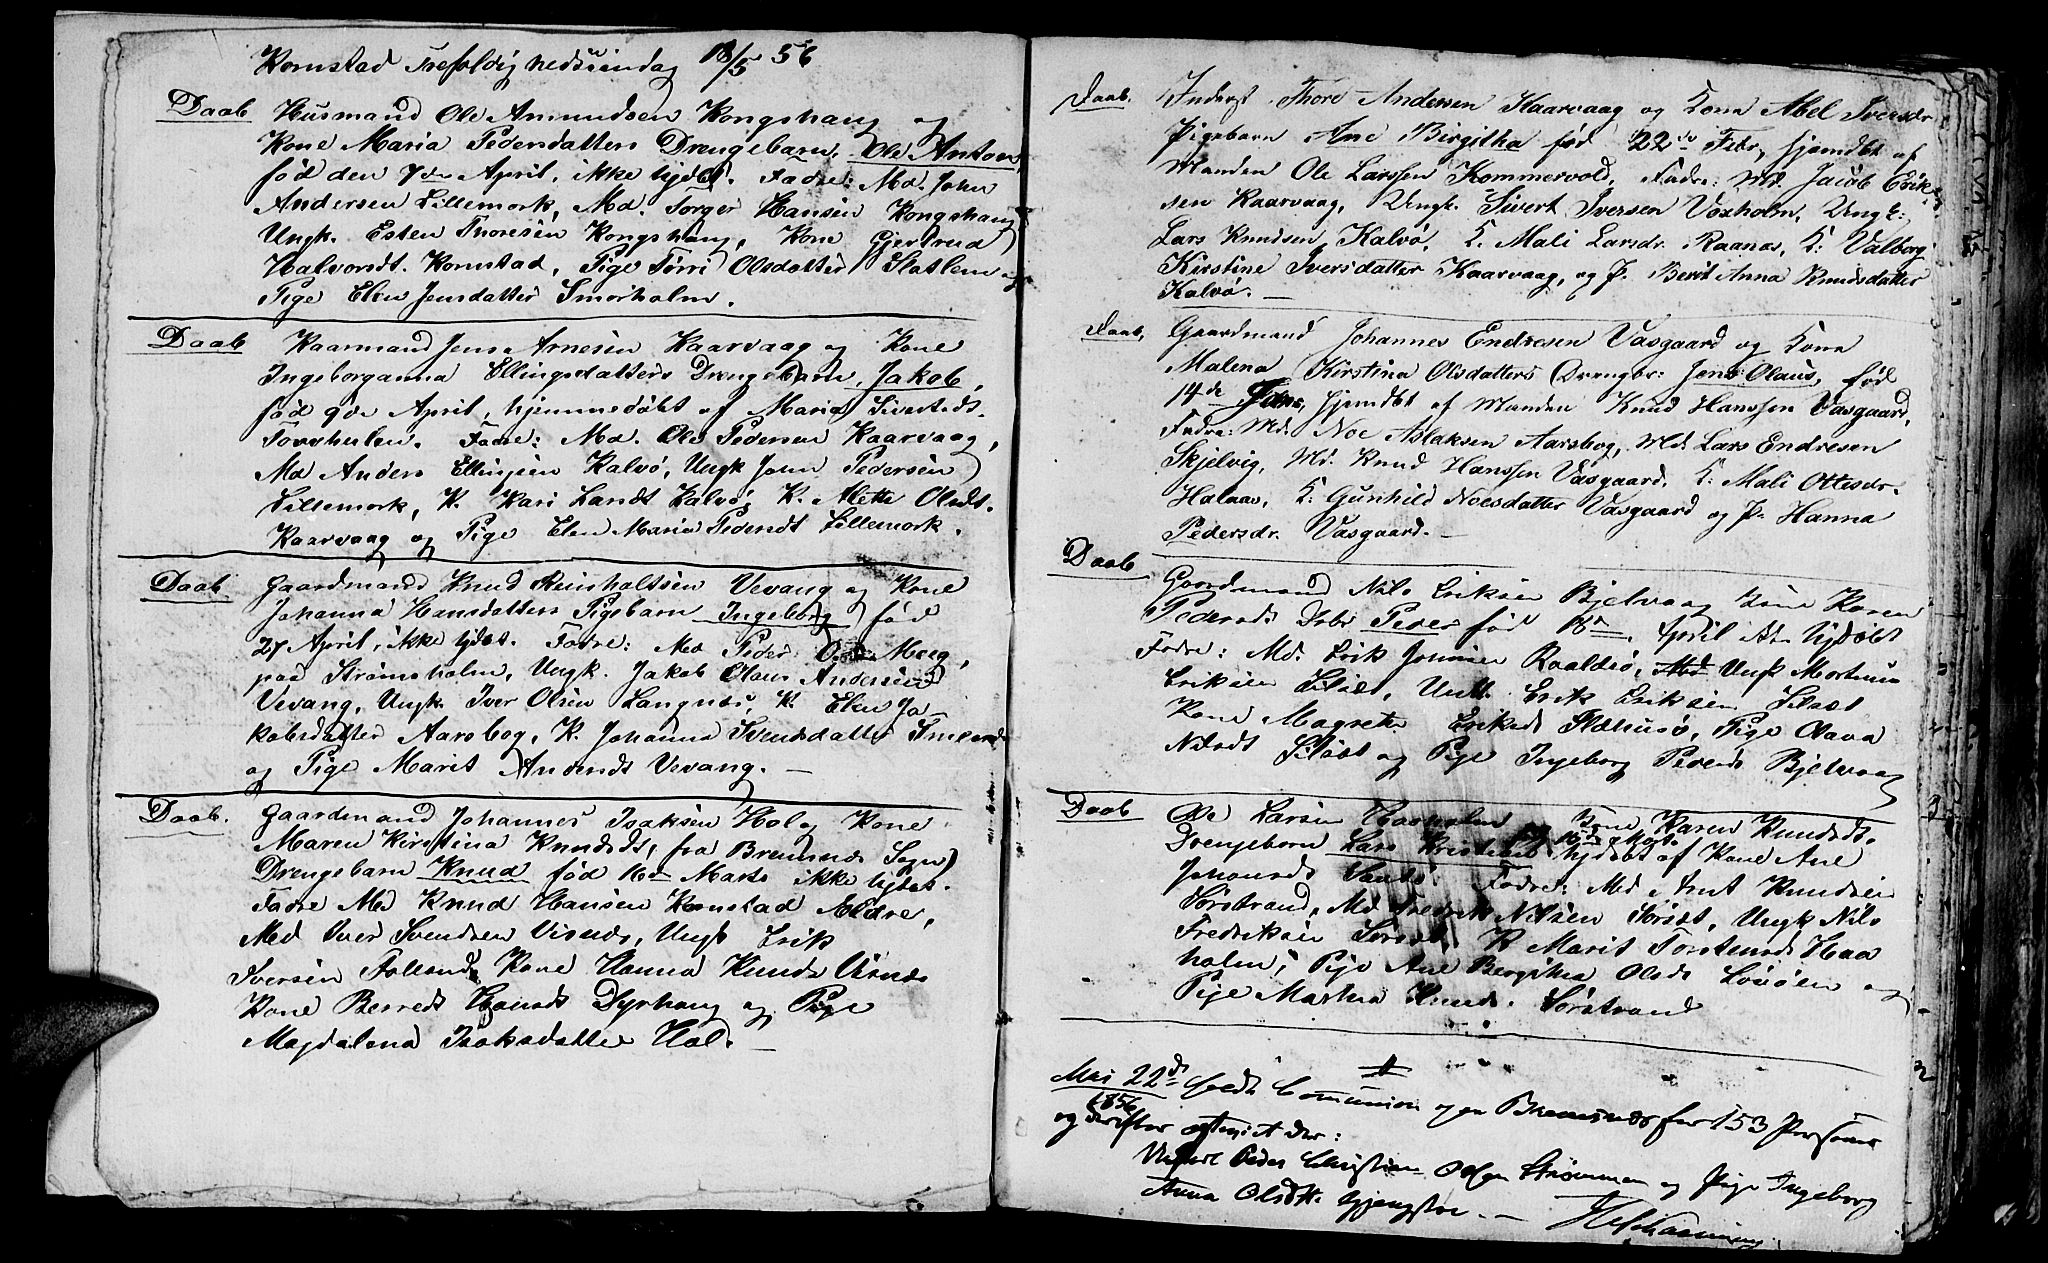 Kornstad Trefoldighedssøndag 18/5 56
Daab Husmand Ole Amundsen Kongshaug og
Kone Maria Pedersdatters Drengebarn, Ole Anton,
fød den 7de April, ikke hjdøbt. Fadre: Md. John
Andersen Lillemork, Md. Torger Hansen Kongshaug
Ungk. Esten Thoresen Kongshaug, Kone Gjertrud
Halvorsdt. Kornstad, Pige Tørri Olsdatter Slatlem og
Pige Elen Jensdatter Smørholm.
Daab Kaarmand Jens Arnesen Kaarvaag og Kone
Ingeborganna Ellingsdatters Drengebarn, Jakob,
fød 9de April, hjemmedøbt af Maria Sivertsds.
Fadre: Md. Ole Pedersen Kaarvaag,
Md Anders Ellingsen Kalvø, Ungk John Pedersen
Lillemork, K. Kari Landt Kalvø, K. Mette Olsdt.
Kaarvaag og Pige Elen Maria Pedersdt Lillemork.
Daab. Gaardmand Knud Reinholtsen Vevang og Kone
Johanna Hansdatters Pigebarn Ingeborg fød
27 April, ikke hjdøbt. Fadre: Md Peder Meeg,
paa Strømsholm, Ungk. Jakob Olaus Andersen
Vevang, Ungk. Iver Olsen Langnæs, K. Elen Ja-
kobsdatter Aarsbog, K. Johanna Svendsdatter
og Pige Marit Andersdt Vevang. —
Daab. Gaardmand Johannes Isaksen Hol og Kone
Maren Kirstina Knudsdt, fra Bremsnes Sogn
Drengebarn Knud fød 16de Marts ikke hjdøbt.
Fadre Md Knud Hansen Kornstad Ældre,
Md Iver Svendsen Visnes, Ungk Erik
Iversen Folland, Kone Hanna Knudsd Visnes
Kone Berred Hansdt Dyrhaug og Pige
Magdalena Isaksdatter Hol. —
Daab. Inderst Thore Andersen Kaarvaag og Kone Abel Iversdr
Pigebarn Ane Birgitha fød 22de Febr, hjemdbt af
Manden Ole Larssen Kommervold, Fadre: Md. Jacob Erik-
sen Kaarvaag, Ungk. Sivert Iversen Voxholm, Ungk:
Lars Knudsen Kalvø, K. Mali Larsdr. Raanæs, K: Valborg
Kirstine Iversdatter Kaarvaag, og P. Berit Anna Knudsdatter
Kalvø. —
Daab, Gaardmand Johannes Endresen Vasgaard og Kone
Malena Kirstina Olsdatters Drengbr: Jens Olaus, fød
14de hjemdbt af Manden Knud Hanssen Vasgaard,
Fadre: Md. Noe Aslaksen Aarsbog, Md. Lars Endresen
Skjelvig, Md. Knud Hanssen Vasgaard, K: Mali Ottesdr.
Halaas, K: Gunhild Noesdatter Vasgaard og P. Hanna
Pedersdr. Vasgaard. —
Daab Gaardmand Nils Eriksen Bjelvaag Kone Karen
Pedersds Drbr Peder fød 18de April hjdøbt
Fadre: Md. Erik Johnsen Roaldsø, Ungk Mortinus
Eriksen Liløst, Ungk. Erik Eriksen Liløst
Kone Magrete Eriksdt Pige Olava
Nilsdt Liløst og Pige Ingeborg Pedersds Bjelvaag
Daab Ole Larsen Haaholm Kone Karen Knudsdt.
Drengebarn Lars Kristian hjdøbt af Kone Ane
Johansdt Fadre: Md Arnt Knudsen
Sørstrand, Md Fredrik Nilsen Ungk Nils
Fredriksen K Marit Torstensds Haa
holm, Pige Ane Bergitha Olsds og
Pige Martha Knuds. Sørstrand
Mai 22de holdt Communion ogsaa Bremsnes for 153 Personer
1856
og derefter der:
Ungkarl Peder Christian Olsen Strømmen og Pige Ingeborg
Anna Olsdtt. Gjengstøe. —